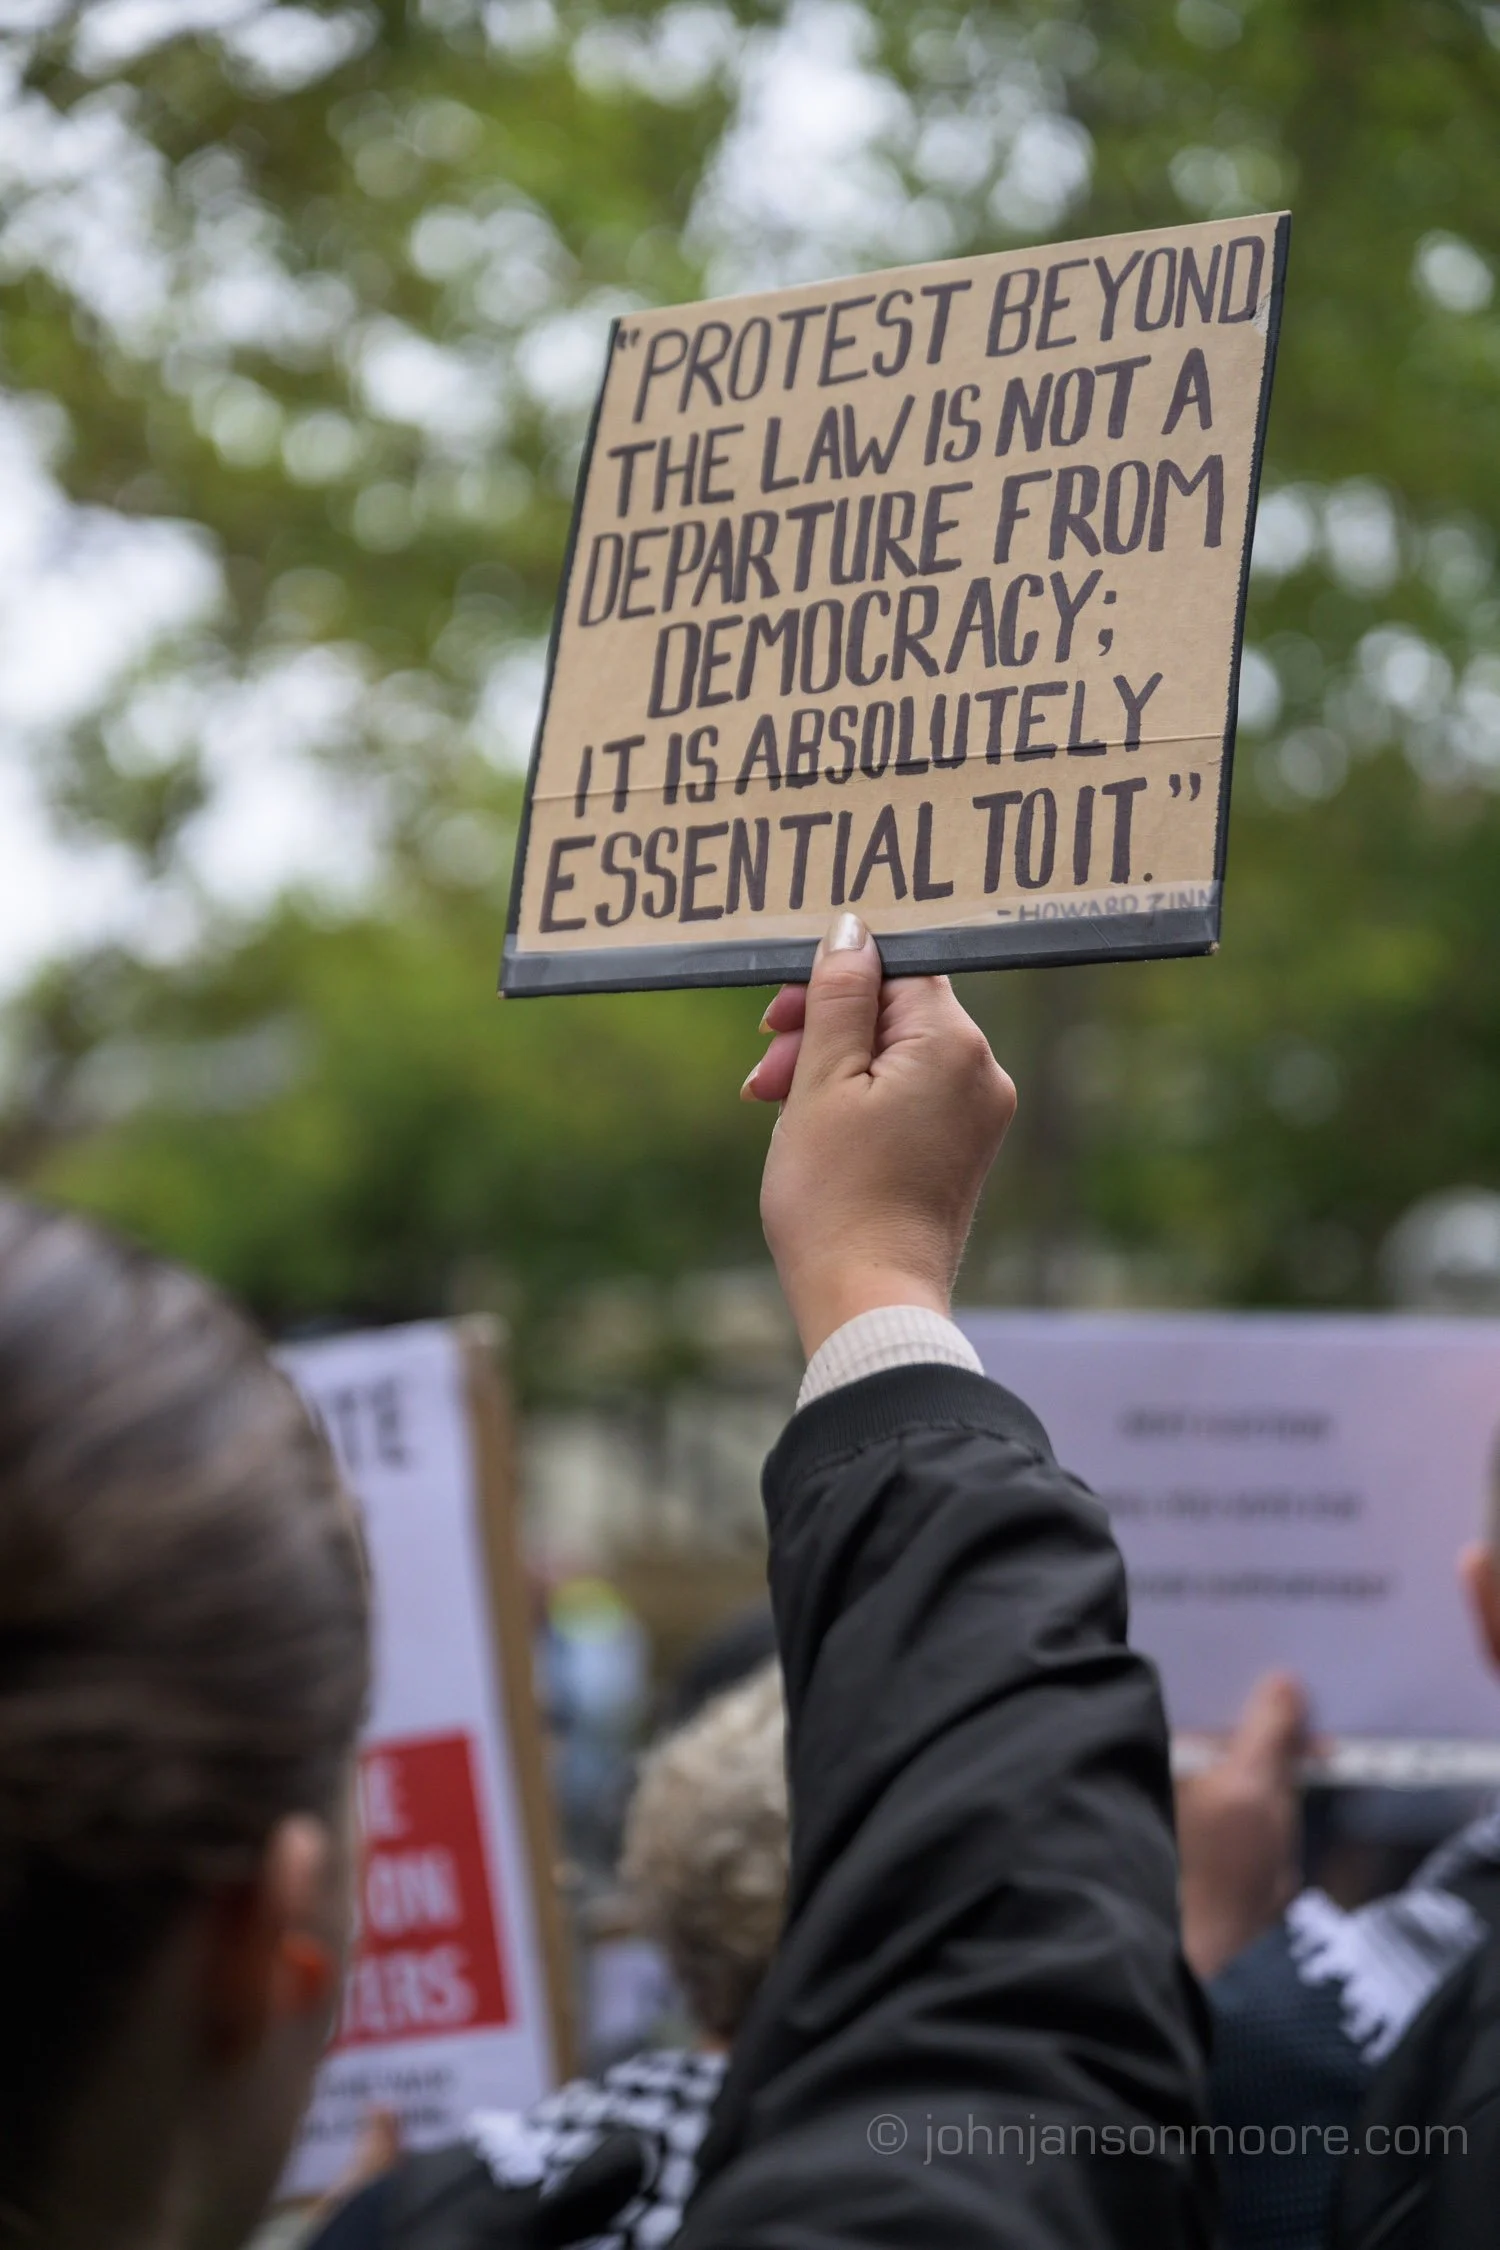 "PROTEST BEYOND
THE LAW IS NOT A
DEPARTURE FROM
DEMOCRACY;
IT IS ABSOLUTELY
ESSENTIAL TO IT."
-HOWARD ZINN
© johnjansonmoore.com